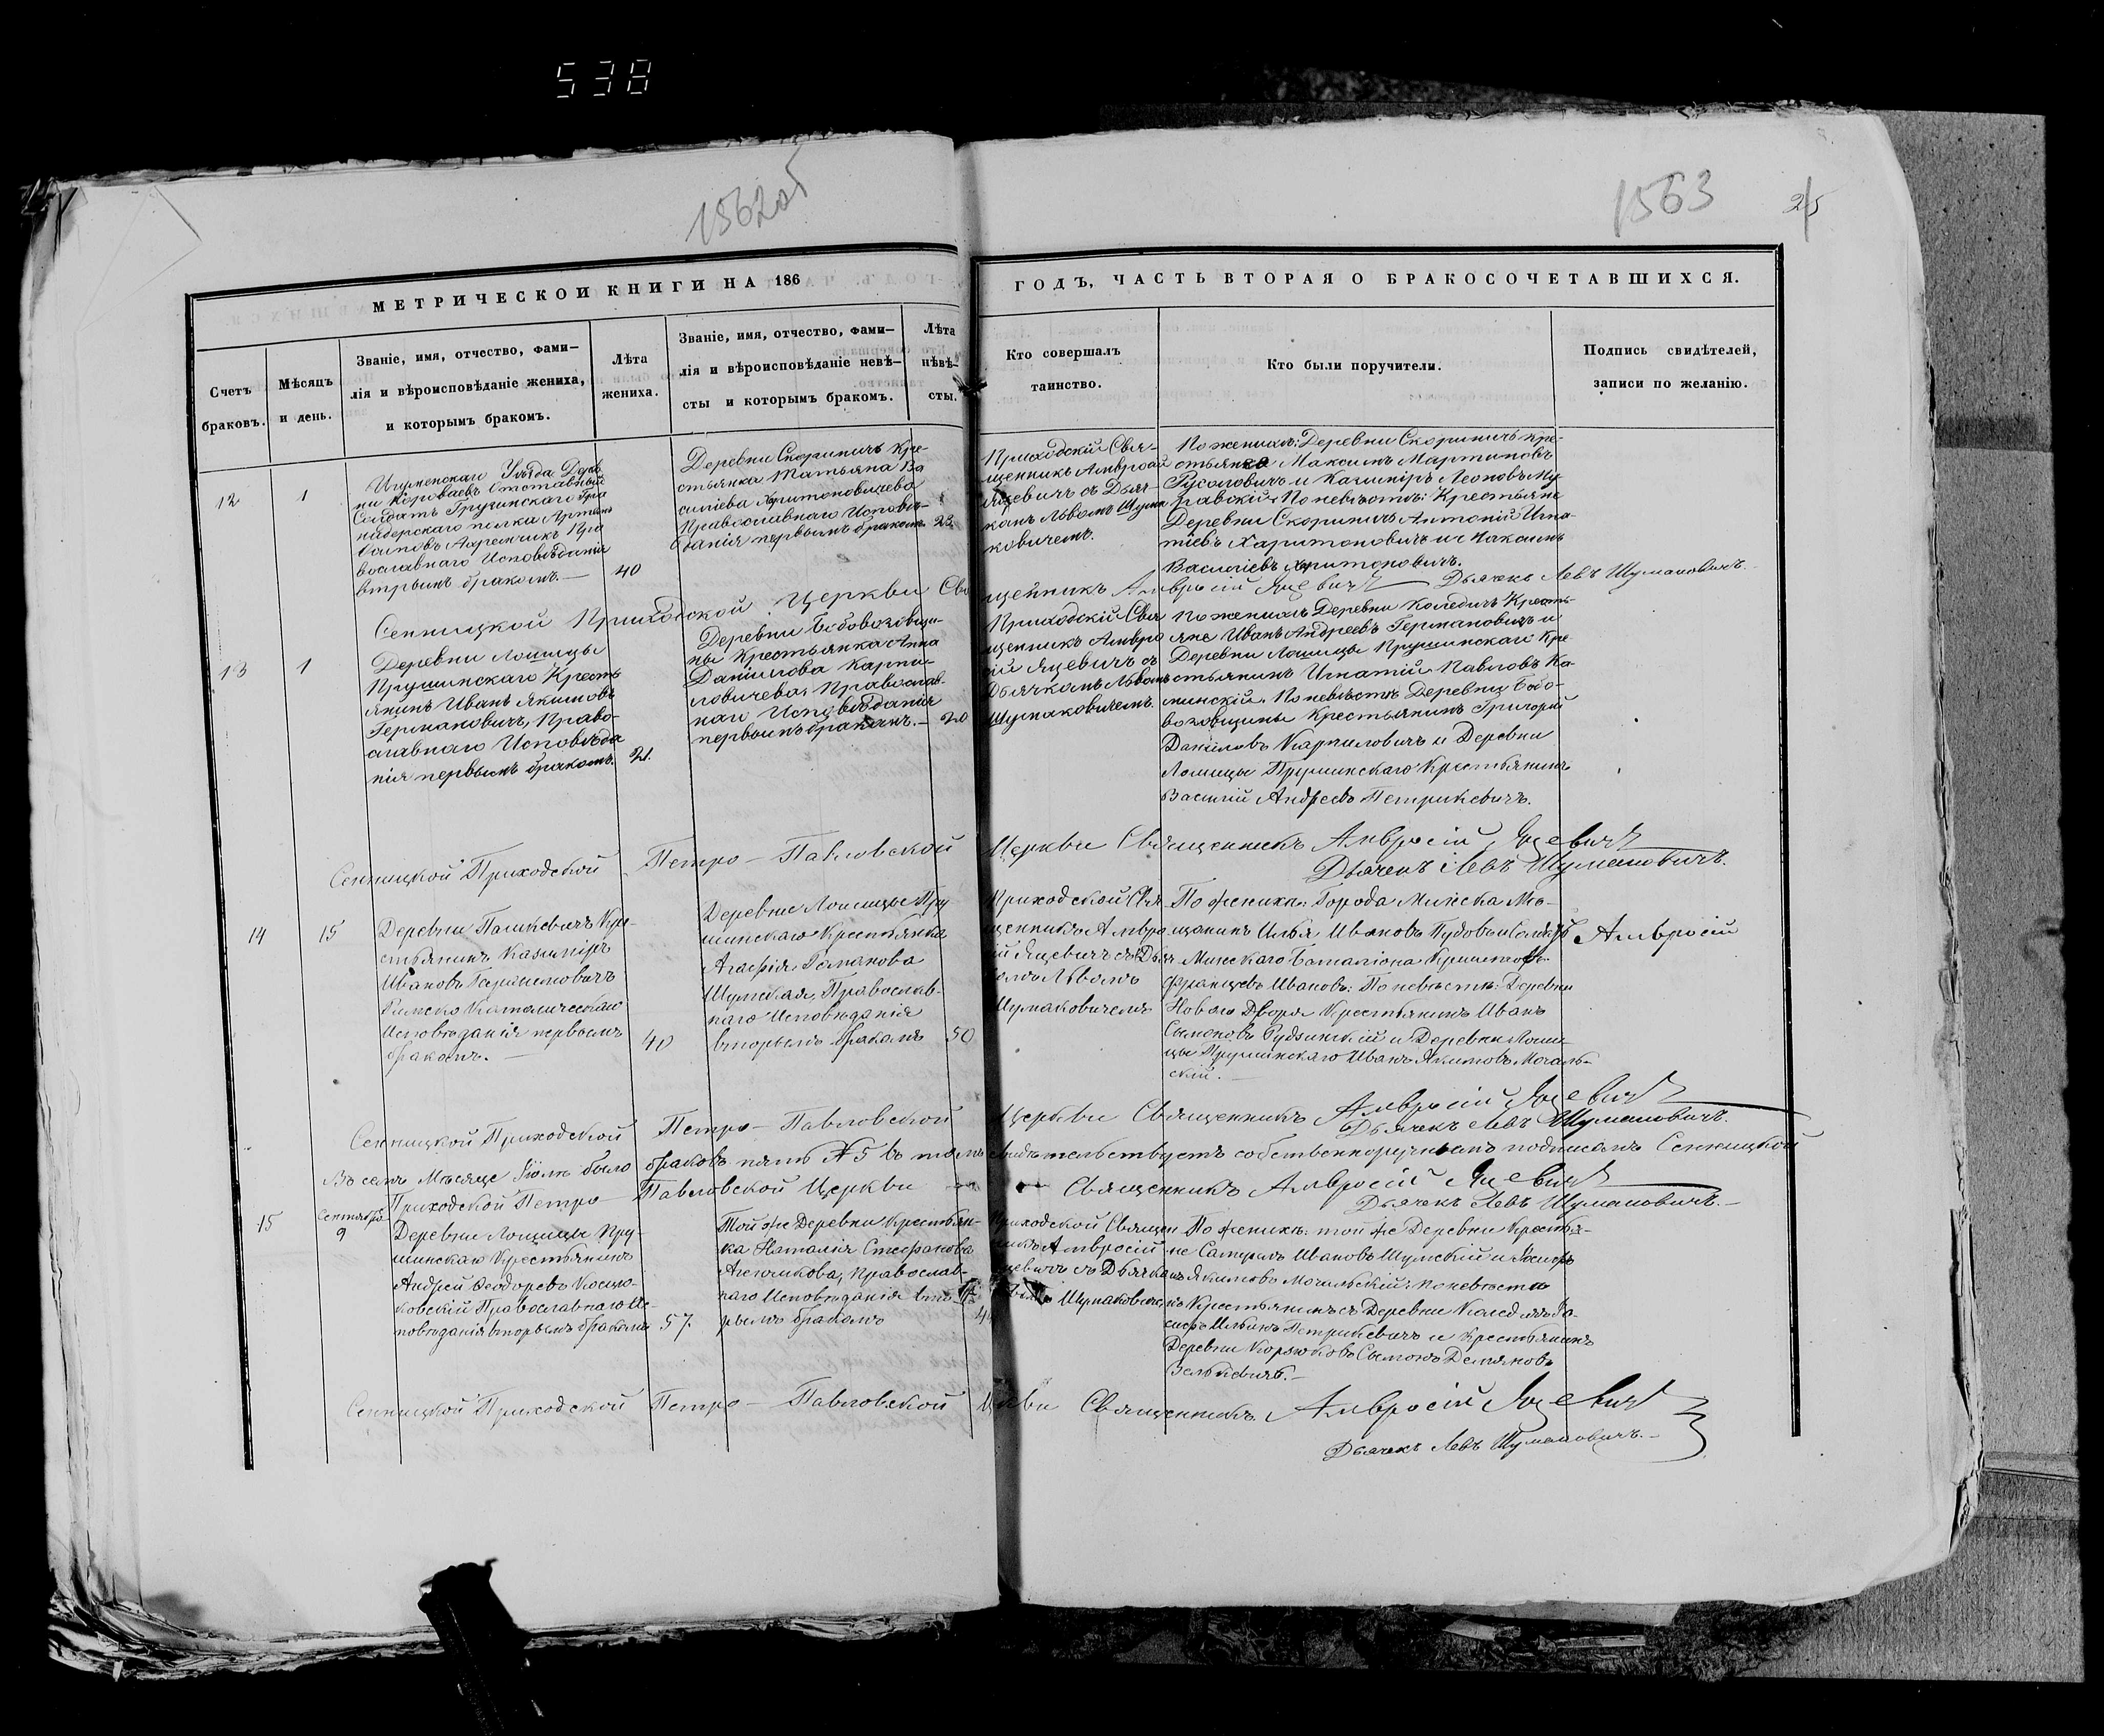 538
1562об
1563
25
МЕТРИЧЕСКОЙ КНИГИ НА 186
ГОДЪ, ЧАСТЬ ВТОРАЯ О БРАКОСОЧЕТАВШИХСЯ.
Счетъ
браковъ.
Мѣсяцъ
и день.
Званіе, имя, отчество, фами–
лія и вѣроисповѣданіе жениха,
и которымъ бракомъ.
Лѣта
жениха.
Званіе, имя, отчество, фами–
лія и вѣроисповѣданіе невѣ–
сты и которымъ бракомъ.
Лѣта
нѣвѣ–
сты.
Кто совершалъ
таинство.
Кто были поручители.
Подпись свидѣтелей,
записи по желанію.
12
1
Игуменскаго Уѣзда Дерев
ни Короваевъ Отставный
Солдатъ Грузинскаго Гра
надерскаго полка
Ахремчикъ Пра
вославнаго Исповѣданія
вторымъ бракомъ. —
40
Деревни Скориничъ Кре-
стьянка Татьяна Ва
силіева Харитоновичева
Православнаго Исповѣ-
данія первымъ бракомъ
23
Приходскій Свя-
щенникъ Амвросій
Яцевичъ съ Дьяч-
комъ Львомъ Шума
ковичемъ.
По женихѣ: Деревни Скориничъ Кре-
стьяне Максимъ Мартиновъ
и Казиміръ Леоновъ Му
равскій: По невѣстѣ: Крестьяне
Деревни Скориничъ Антоній Игна-
тіевъ Харитоновичъ и Максимъ
Василіевъ Харитоновичъ.
Сенницкой Приходской Церкви Свя
щенникъ Амвросій Яцевичъ — Дьячекъ Левъ Шумаковичъ.
13
1
Деревни Лошицы
Прушинскаго Кресть
янинъ Иванъ Якимовъ
Германовичъ, Право-
славнаго Исповѣда
нія первымъ бракомъ.
21.
Деревни Бобовозовщи-
ны Крестьянка Анна
Даніилова Карпи-
ловичева, Православ-
наго Исповѣданія
первымъ бракомъ. —
20
Приходскій Свя
щенникъ Амвро
сій Яцевичъ съ
Дьячкомъ Львомъ
Шумаковичемъ.
По женихѣ Деревни Коледичъ Кресть-
яне Иванъ Андреевъ Германовичъ и
Деревни Лошицы Прушинскаго Кре
стьянинъ Игнатій Павловъ Ка
минскій. По невѣстѣ Деревни Бобо-
возовщины Крестьянинъ Григорій
Даніиловъ Карпиловичъ и Деревни
Лошицы Прушинскаго Крестьянинъ
Василій Андреевъ Петрикевичъ.
Сенницкой Приходской Петро — Павловской Церкви Священникъ Амвросій Яцевичъ
Дьячекъ Левъ Шумаковичъ.
14
15
Деревни Пашкевичъ Кре-
стьянинъ Казиміръ
Ивановъ
Римско Католическаго
Исповѣданія первымъ
бракомъ. —
40
Деревни Лошицы Пру
шинскаго Крестьянка
Агафія Романова
Шумская, Православ-
наго Исповѣданія
вторымъ бракомъ
50
Приходской Свя
щенникъ Амвро
ій Яцевичъ съ Дья
комъ Львомъ
Шумаковичемъ
По женихѣ: Города Минска Мѣ-
щанинъ Илья Ивановъ
Минскаго Баталіона
Францевъ Ивановъ: По невѣстѣ: Деревни
Новаго Двора Крестьянинъ Иванъ
Сымоновъ Рудзинскій и Деревни Лоши-
цы Прушинскаго Иванъ Якимовъ Могиль-
скій. —
Амвросій
Сенницкой Приходской Петро — Павловской Церкви Священникъ Амвросій Яцевичъ
Дьячекъ Левъ Шумаковичъ.
Въ семъ Мѣсяце Іюлѣ было браковъ пять №5 въ томъ свидѣтельствуетъ собственноручнымъ подписомъ Сенницкой
Приходской Петро — Павловской Церкви — Священникъ Амвросій Яцевичъ
Дьячекъ Левъ Шумаковичъ. —
15
Сентября
9
Деревни Лошицы Пру-
шинскаго Крестьянинъ
Андрей Ѳеодоровъ Косцю-
ковскій Православнаго Ис-
повѣданія вторымъ бракомъ
57.
Той же Деревни Крестьян-
ка Наталія Стефанова
Анемикова, Православ-
наго Исповѣданія вто-
рымъ бракомъ
Приходской Священ
никъ Амвросій
Яцевичъ съ Дьячкомъ
Шумаковиче
По женихѣ: той же Деревни Крестья-
не Самуилъ Ивановъ Шумскій и Іосифъ
Якимовъ Могильскій: По невѣстѣ
Крестьянинъ съ Деревни Коледичъ Іо-
сифъ Ильинъ Петрикевичъ и Крестьянинъ
Деревни Корзюковъ Сымонъ Демяновъ
Велькевичъ. —
Сенницкой Приходской Петро — Павловской Церкви Священникъ Амвросій Яцевичъ
Дьячекъ Левъ Шумаковичъ. —